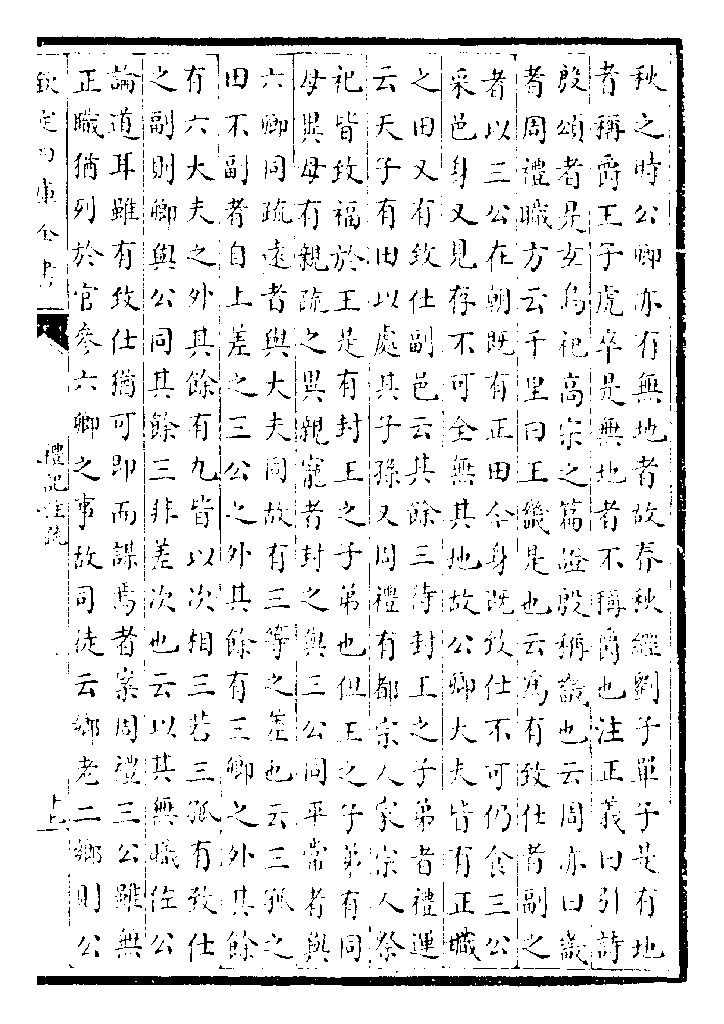 秋之時公卿亦有無地者故春秋經劉子單子是有地
者稱爵王子虎卒是無地者不稱爵也注正義曰引詩
殷頌者是玄鳥祀高宗之篇證殷稱畿也云周亦曰畿
者周禮職方云千里曰王畿是也云為有致仕者副之
者以三公在朝既有正田今身既致仕不可仍食三公
采邑身又見存不可全無其地故公卿大夫皆有正職
之田又有致仕副邑云其餘三待封王之子弟者禮運
云天子有田以處其子孫又周禮有都宗人家宗人祭
祀皆致福於王是有封王之子弟也但王之子弟有同
母異母有親疏之異親寵者封之與三公同平常者與
六卿同疏遠者與大夫同故有三等之差也云三孤之
田不副者自上差之三公之外其餘有三卿之外其餘
有六大夫之外其餘有九皆以次相三若三孤有致仕
之副則卿與公同其餘三非差次也云以其無職佐公
論道耳雖有致仕猶可即而謀焉者案周禮三公雖無
正職猶列於官參六卿之事故司徒云鄉老二鄉則公
欽定四庫全書
禮記注疏